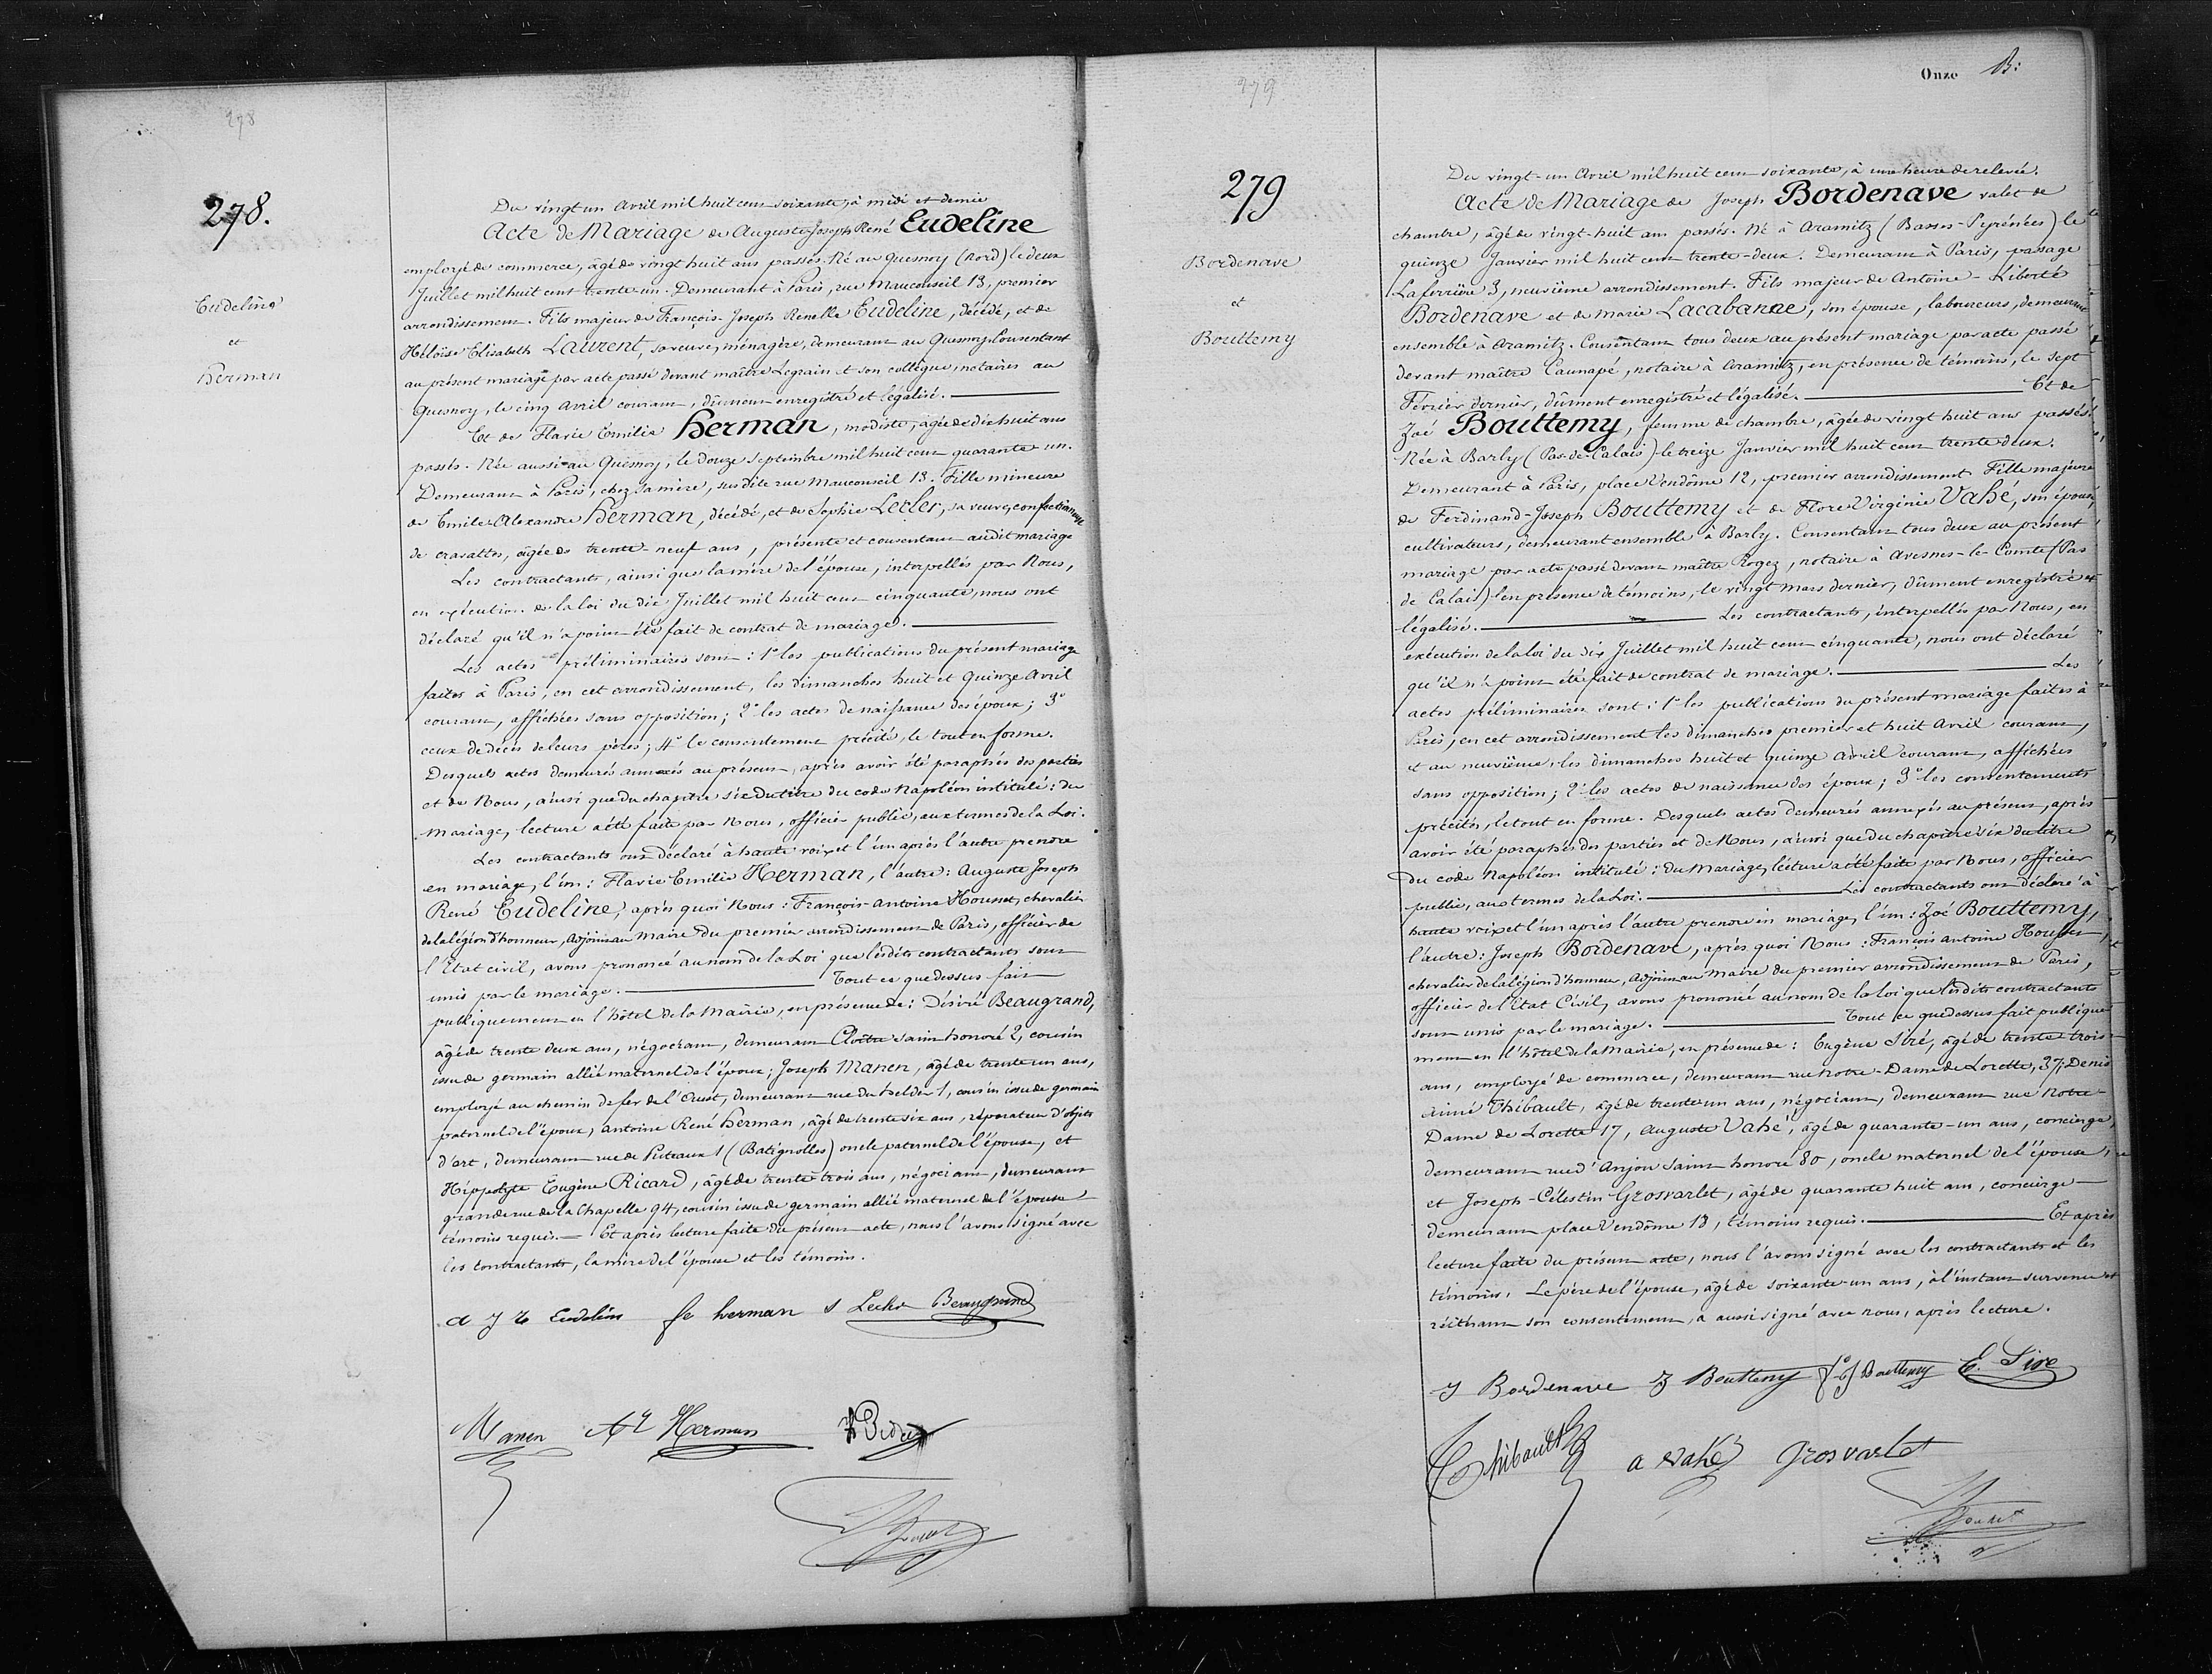 278
278.
Eudeline
et
Herman
Du vingt un Avril mil huit cent soixante, à midi et demie
Acte de Mariage de Auguste Joseph René Eudeline
employé de commerce, âgé de vingt huit ans passés. Né au Quesnoy (Nord) le deux
Juillet mil huit cent trente un. Demeurant à Paris, rue Mauconseil 13, premier
arrondissement. Fils majeur de François-Joseph Renelle Eudeline, décédé, et de
Héloïse Elisabeth Laurent, sa veuve, ménagère, demeurant au Quesnoy. Consentant
au présent mariage par acte passé devant maître Legrain et son collègue, notaires au
Quesnoy, le cinq Avril courant, dûment enregistré et légalisé.
Et de Flavie Emilie Herman, modiste, âgée de dix huit ans
passés. Née aussi au Quesnoy, le douze Septembre mil huit cent quarante un.
Demeurant à Paris, chez sa mère, susdite rue Mauconseil 13. Fille mineure
de Emile-Alexandre Herman, décédé, et de Sophie Lecler, sa veuve, confectionneuse
de cravattes, âgée de trente-neuf ans, présente et consentant audit mariage
Les contractants, ainsi que la mère de l'épouse, interpellés par Nous,
en exécution de la loi du dix Juillet mil huit cent cinquante, nous ont
déclaré qu'il n'a point été fait de contrat de mariage.
Les actes préliminaires sont : 1° les publications du présent mariage
faites à Paris, en cet arrondissement, les dimanches huit et quinze Avril
courant, affichées sans opposition; 2° les actes de naissance des époux; 3°
ceux de décès de leurs pères; 4° le consentement précité, le tout en forme.
Desquels actes demeurés annexés au présent, après avoir été paraphés des parties
et de Nous, ainsi que du chapitre six du titre du code Napoléon intitulé : du
Mariage, lecture a été faite par Nous, officier public, aux termes de la Loi.
Les contractants ont déclaré à haute voix et l'un après l'autre prendre
en mariage, l'un : Flavie Emilie Herman, l'autre : Auguste Joseph
René Eudeline, après quoi Nous : François-Antoine Housset, chevalier
de la légion d'honneur, Adjoint au Maire du premier arrondissement de Paris, officier de
l'Etat civil, avons prononcé au nom de la Loi que lesdits contractants sont
unis par le mariage. Tout ce que dessus fait
publiquement en l'hôtel de la Mairie, en présence de : Désiré Beaugrand,
âgé de trente deux ans, négociant, demeurant Cloître saint honoré 2, cousin
issu de germain allié maternel de l'époux; Joseph Manen, âgé de trente un ans,
employé au chemin de fer de l'Ouest, demeurant rue du helder 1, cousin issu de germain
paternel de l'époux, Antoine René Herman, âgé de trente six ans, réparateur d'objets
d'art, demeurant rue de Puteaux 1 (Batignolles) oncle paternel de l'épouse, et
Hippolyte Eugène Ricard, âgé de trente trois ans, négociant, demeurant
grande rue de la Chapelle 94, cousin issu de germain allié maternel de l'épouse
témoins requis. — Et après lecture faite du présent acte, nous l'avons signé avec
les contractants, la mère de l'épouse et les témoins.
A J R Eudeline fe herman S Lecler Beaugrand
Manen Herman
Housset
Onze
279
279
Bordenave
et
Bouttemy
Du vingt-un Avril mil huit cent soixante, à une heure de relevée.
Acte de Mariage de Joseph Bordenave valet de
chambre, âgé de vingt-huit ans passés. Né à Aramitz (Basses-Pyrénées) le
quinze Janvier mil huit cent trente-deux. Demeurant à Paris, passage
Laferrière 3, neuvième arrondissement. Fils majeur de Antoine-Liberté
Bordenave et de Marie Lacabanne, son épouse, laboureurs, demeurant
ensemble à Aramitz. Consentant tous deux au présent mariage par acte passé
devant maître Caunapé, notaire à Aramitz, en présence de témoins, le sept
Février dernier, dûment enregistré et légalisé. Et de
Zoé Bouttemy, femme de chambre, âgée de vingt huit ans passés.
Née à Barly (Pas-de-Calais) le treize Janvier mil huit cent trente deux.
Demeurant à Paris, place Vendôme 12, premier arrondissement. Fille majeure
de Ferdinand-Joseph Bouttemy et de Flore Virginie Vahé, son épouse,
cultivateurs, demeurant ensemble à Barly. Consentant tous deux au présent
mariage par acte passé devant maître Rogez, notaire à Avesnes-le-Comte (Pas
de Calais) en présence de témoins, le vingt Mars dernier, dûment enregistré et
légalisé. Les contractants, interpellés par Nous, en
exécution de la loi du dix Juillet mil huit cent cinquante, nous ont déclaré
qu'il n'a point été fait de contrat de mariage. Les
actes préliminaires sont : 1° les publications du présent mariage faites à
Paris, en cet arrondissement les dimanches premier et huit Avril courant,
et au neuvième, les dimanches huit et quinze Avril courant, affichées
sans opposition; 2° les actes de naissance des époux; 3° les consentements
précités, le tout en forme. Desquels actes demeurés annexés au présent, après
avoir été paraphés des parties et de Nous, ainsi que du chapitre six du titre
du code Napoléon intitulé : du Mariage, lecture a été faite par Nous, officier
public, aux termes de la Loi. Les contractants ont déclaré à
haute voix et l'un après l'autre prendre en mariage, l'un : Zoé Bouttemy,
l'autre : Joseph Bordenave, après quoi Nous : François Antoine Housset,
chevalier de la légion d'honneur, Adjoint au Maire du premier arrondissement de Paris,
officier de l'Etat Civil, avons prononcé au nom de la loi que lesdits contractants
sont unis par le mariage. Tout ce que dessus fait publique-
ment en l'hôtel de la Mairie, en présence de : Eugène Siré, âgé de trente-trois
ans, employé de commerce, demeurant rue Notre-Dame de Lorette, 37; Denis
Aimé Thibault, âgé de trente un ans, négociant, demeurant rue Notre-
Dame de Lorette 17, Auguste Vahé, âgé de quarante-un ans, concierge,
demeurant rue d'Anjou saint honoré 80, oncle maternel de l'épouse,
et Joseph-Célestin Grosvarlet, âgé de quarante huit ans, concierge
demeurant place Vendôme 18, témoins requis. Et après
lecture faite du présent acte, nous l'avons signé avec les contractants et les
témoins. Le père de l'épouse, âgé de soixante-un ans, à l'instant survenu et
réitérant son consentement, a aussi signé avec nous, après lecture.
J Bordenave Z Bouttemy Bouttemy E. Siré
Thibault A Vahé Grosvarlet
Housset